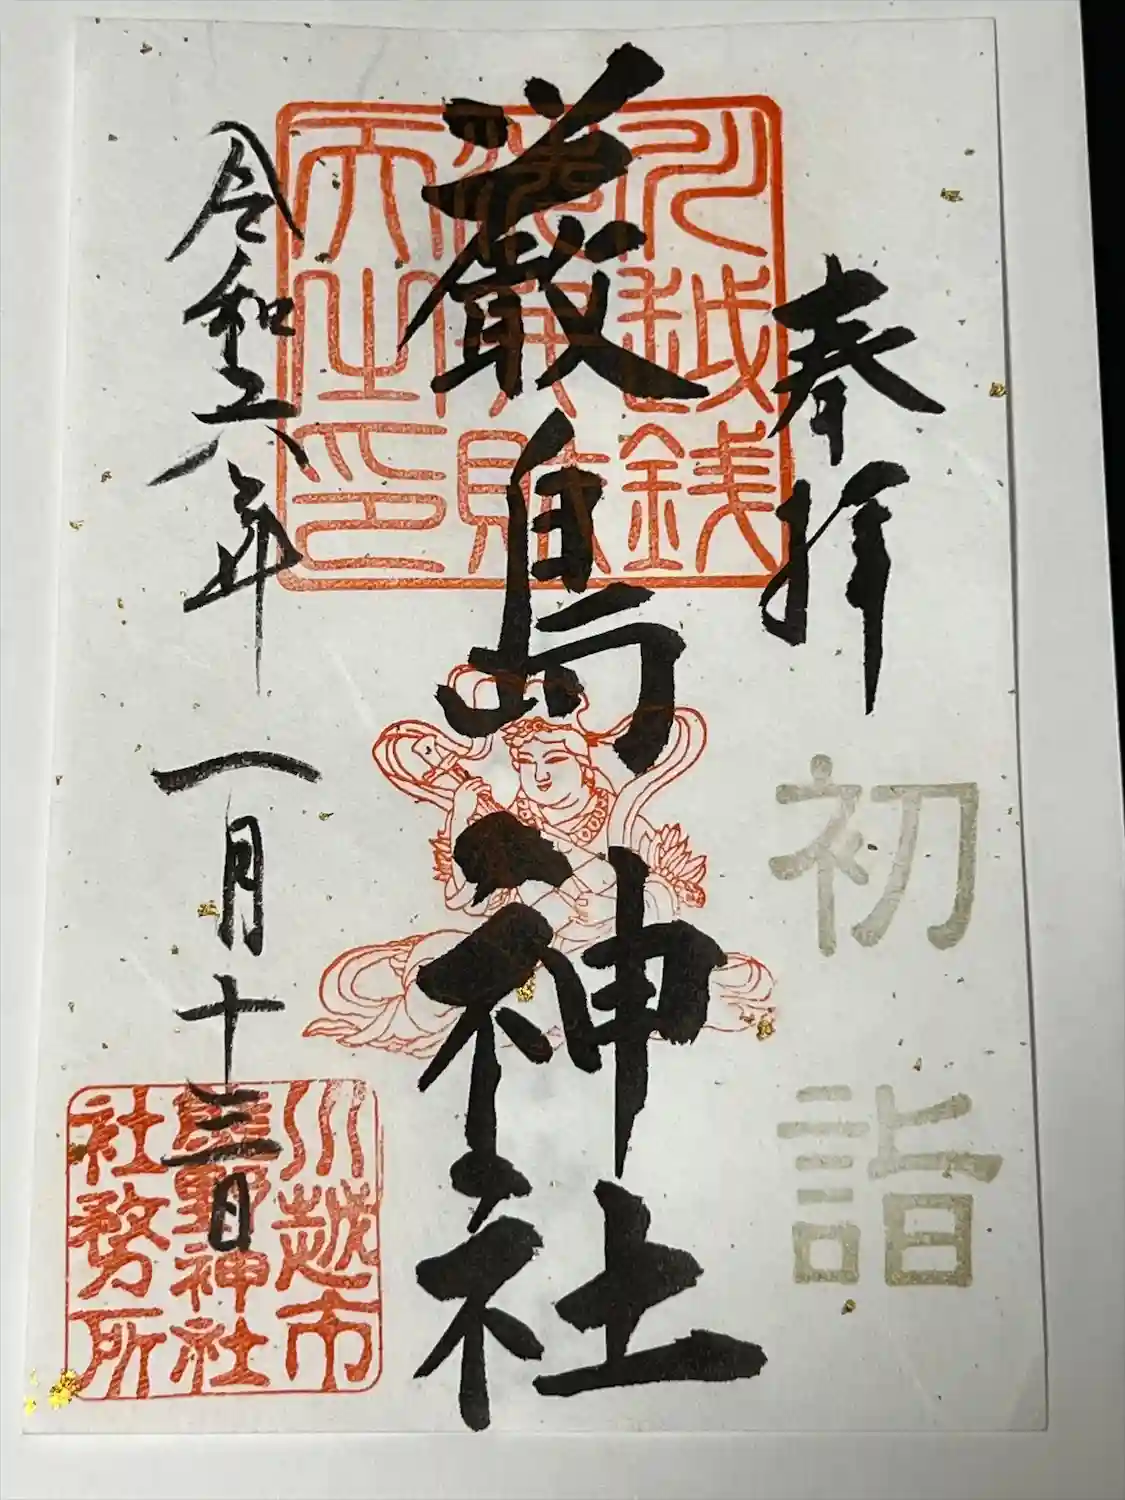 奉拝
初詣
川越銭
洗弁財
天之印
厳島神社
令和六年一月十三日
川越市
熊野神社
社務所